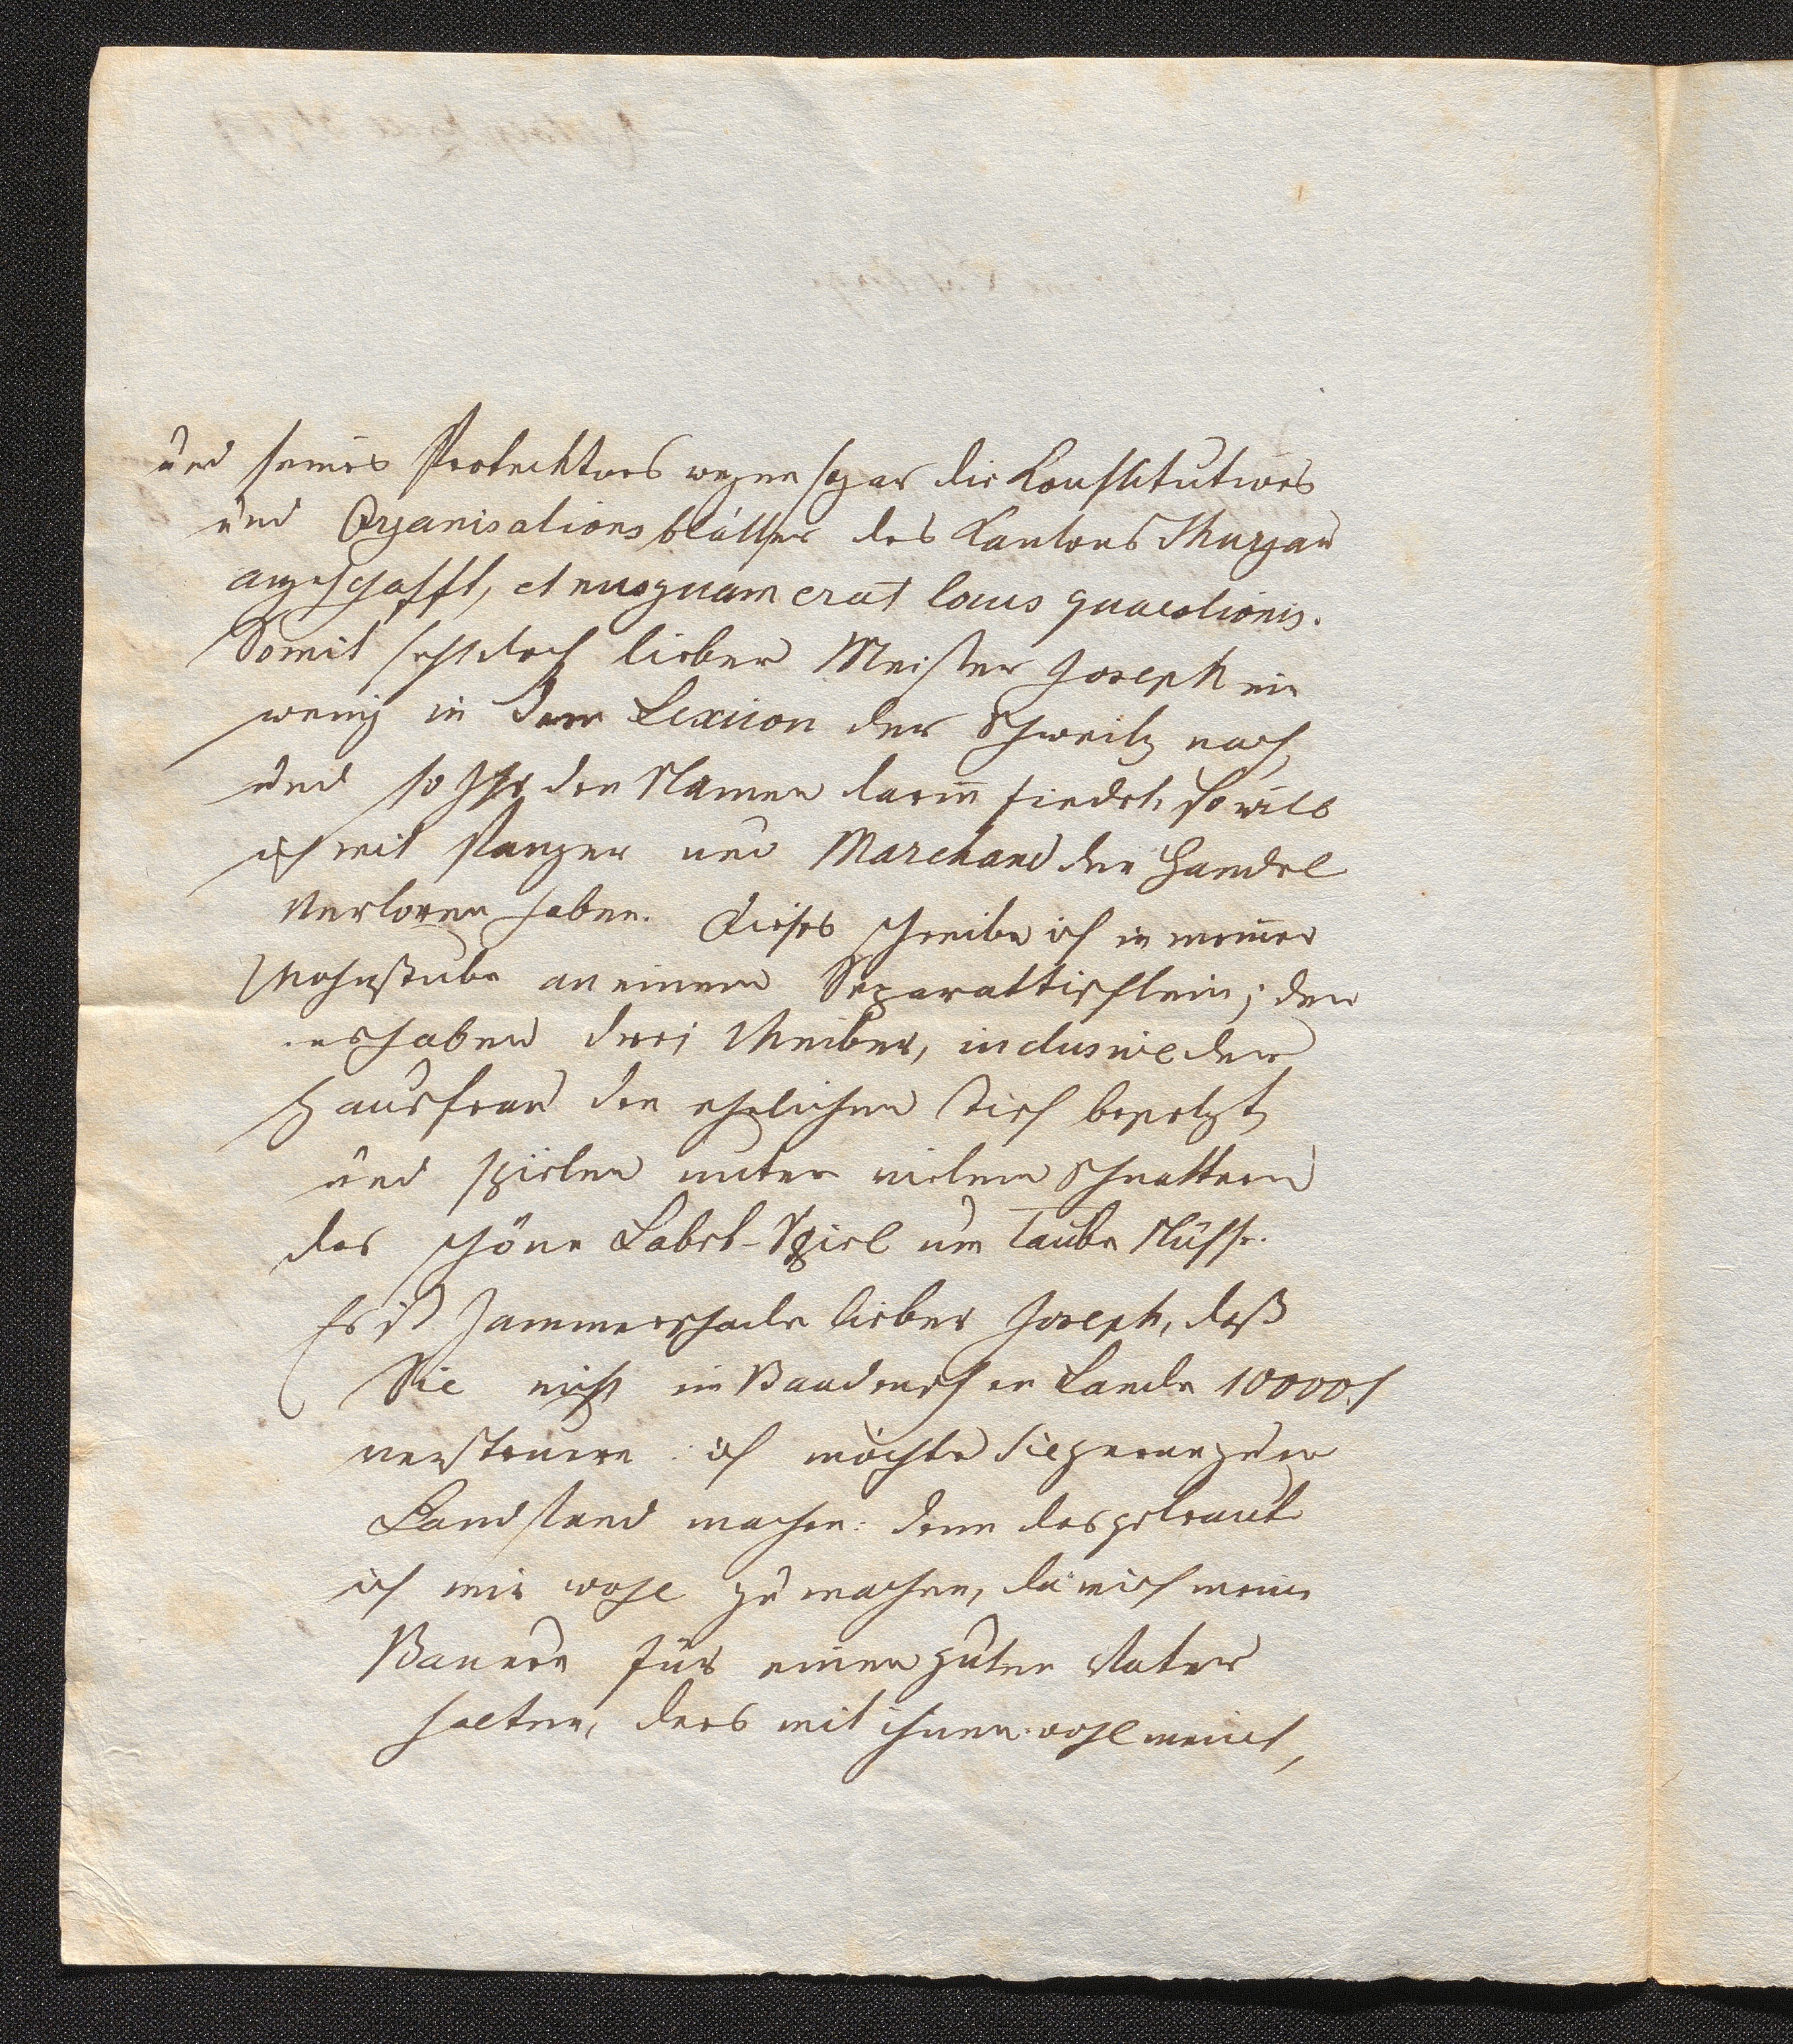 und seines Protecktors wegen sogar die Konstitutions
und Organisationsblätter des Kantons Thurgau
angeschafft, et nusquam erat locus quaestionis.
Somit seht doch lieber Meister Joseph ein
wenig in dem Lexicon der Schweitz nach,
und so Ihr den Namen darin̅ findet, so will
ich mit Panzer und Marchand den Handel
verloren haben. Dieses schreibe ich in meiner
Wohnstube an einem Separattischlein; den
es haben drei Weiber, inclusive der
Hausfrau den ehrlichen Tisch besetzt
und spielen unter vielem Schnattern
das schöne Labet-Spiel um taube Nüsse.
Es ist Jammerschade lieber Joseph, daß
Sie nicht im Baadenschen Lande 10000 f
versteuern: ich möchte Sie gerne zum
Landstand machen: denn das getraute
ich mir wohl zu machen, da mich meine
Bauern für einen guten Vater
halten, ders mit ihnen wohl meint,